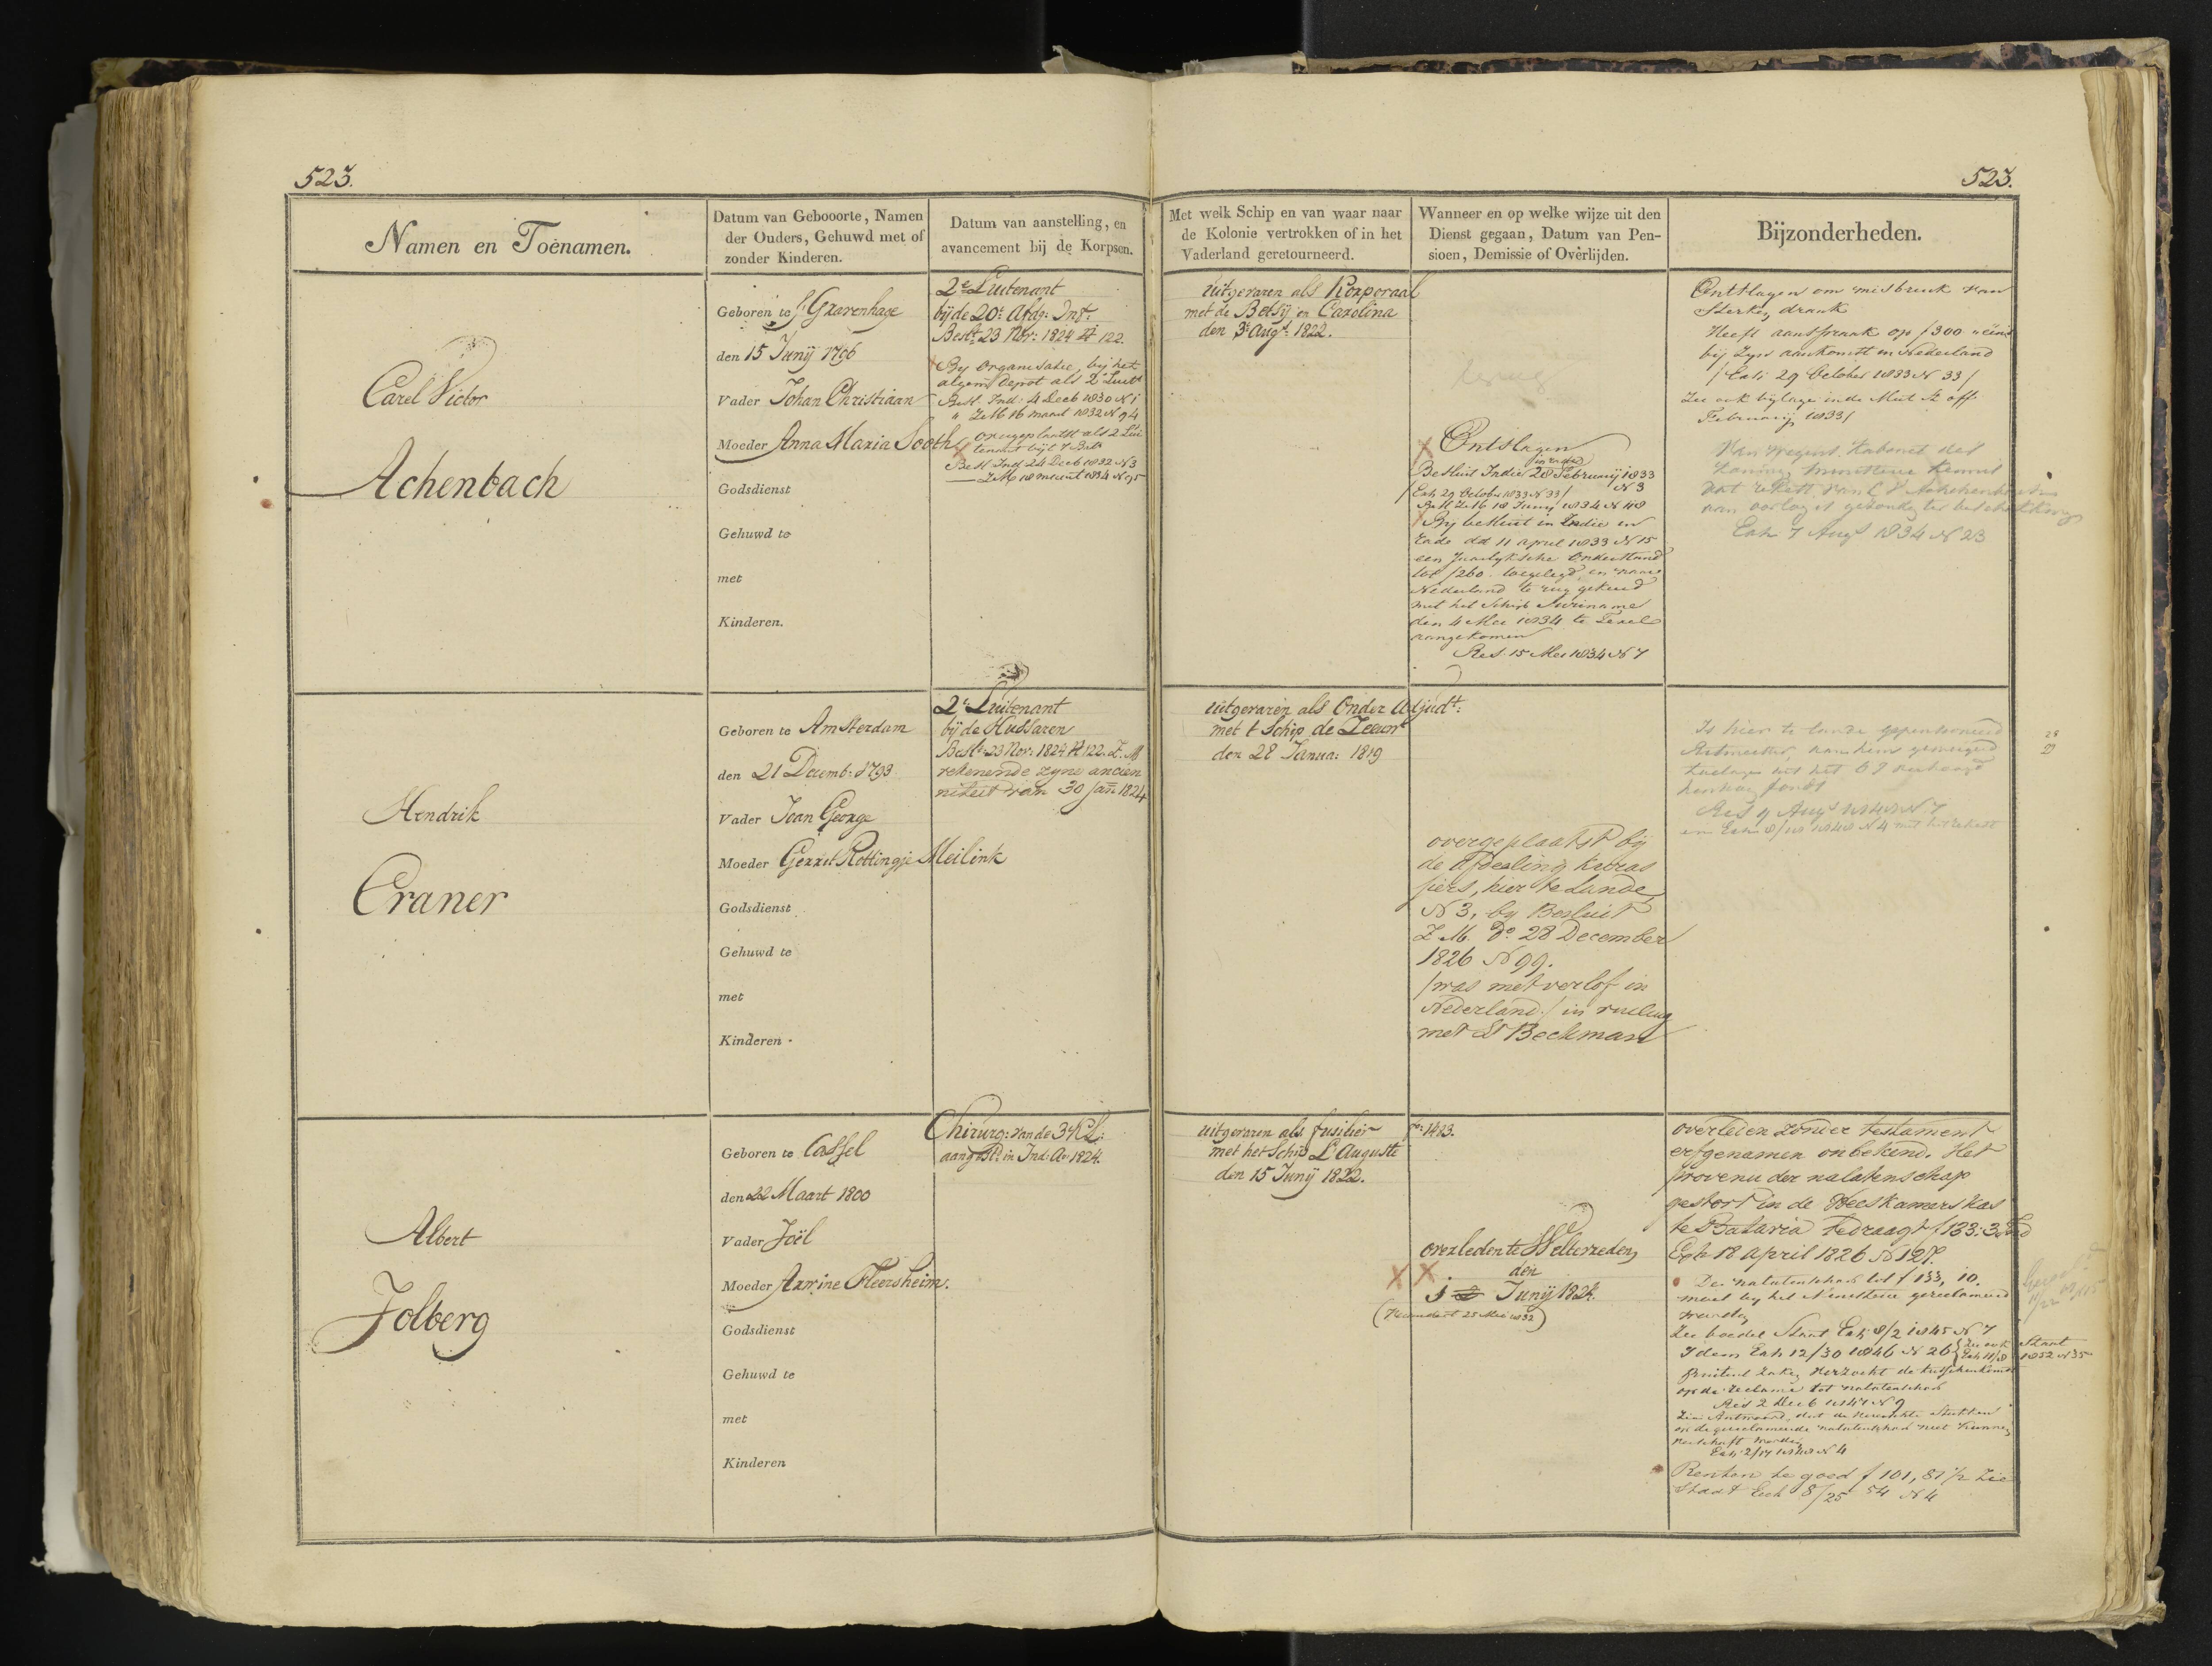 523.
523.
Namen en Toenamen.
Datum van Gebooorte, Namen
der Ouders, Gehuwd met of
zonder Kinderen.
Datum van aanstelling, en
avancement bij de Korpsen.
Met welk Schip en van waar naar
de Kolonie vertrokken of in het
Vaderland geretourneerd.
Wanneer en op welke wijze uit den
Dienst gegaan, Datum van Pen-
sioen, Demissie of Overlijden.
Bijzonderheden.
Carel Victor
Achenbach
Geboren te s'Gravenhage
den 15 Junij 1796
Vader Johan Christiaan
Moeder Anna Maria Sooth
Godsdienst
Gehuwd te
met
Kinderen.
2e Luitenant
bij de 20e Afdg: Inf:
Beslt 23 Nov: 1824 N 122.
By organisatie, bij het
algem Depot als 2e Luitt
Besl. Ind. 4 Decb 1830 N 1
" ZM 16 maart 1832 N 94
overgeplaatst als 2 Lui
tenant bijt 7 Bat
Besl Ind 24 Decb 1832 N 3
ZM 18 maart 1834 N 95
uitgevaren als Korporaal
met de Betsij en Carolina
den 3e Augt: 1822.
terug
Ontslagen
Besluit Indie 28 Februarij 1833
N 3
/Exh 29 October 1833 N 33/
Besl ZM 18 Junij 1834 N 118
By besluit in Indie in
rade dd 11 april 1833 N 15
een Jaarlyksche onderstand
tot f260. toegelegd, en naar
Nederland te rug gekeerd
met het Schip Suriname
den 4 Mei 1834 te Texel
aangekomen
Res. 15 Mei 1834 N 7
Ontslagen om misbruik van
Sterken drank
Heeft aanspraak op f300 eens
bij Zyn aankomst in Nederland
/Exh 29 October 1833 N 33/
Zie ook bylage in de Mut St off.
Februarij 1833/
Van wegens Kabinet des
Konings
van oorlog is gezonden ter beschikking
Exh 7 Augs 1834 N 23
Hendrik
Craner
Geboren te Amsterdam
den 21 Decemb: 1793
Vader Joan George
Moeder Gerret Rottingje Meilink
Godsdienst
Gehuwd te
met
Kinderen
2e Luitenant
bij de Hussaren
Beslt: 23 Nov: 1824 N 122. Z.M
rekenende zyne ancien
niteit van 30 Jan 1824
uitgevaren als Onder Adjudt:
met t Schip de Zeeuw
den 28 Janua: 1819
overgeplaatst bij
de afdeeling kuras
siers, hier te Lande
N 3, by Besluit
Z M. Do 28 December
1826 N 99.
/was met verlof in
Nederland/ in ruiling
met Lt Beckman
Is hier te lande gepensioneerd
Ritmeester, aan hem geweigerd
Res 9 Augs 1848 N 7
28
29
Albert
Jolberg
Geboren te Cassel
den 22 Maart 1800
Vader Joël
Moeder Armine Fleersheim.
Godsdienst
Gehuwd te
met
Kinderen
Chirurg: van de 3e Kl:
aangest: in Ind: Ao 1824.
uitgevaren als fusilier
met het Schip L'Auguste
den 15 Junij 1822.
No: 1483.
overleden te Welterreden,
den
1 Junij 1824.
(Kennisbert 25 Mei 1832)
overleden zonder testament
erfgenamen onbekend. Het
provenu der nalatenschap
gestort in de Weeskamers Kas
te Batavia bedraagt f133:3
Exh 18 april 1826 N 127.
De nalatenschap tot f 133, 10.
moet by het Ministerie gereclameerd
worden
Zie boedel Staat Exh 8/2 1845 N 7
Idem Exh 12/30 1846 N 26 Zie ook Staat
Exh 11/8 1852 N 35
Buitenl Zaken Verzocht de tusschenkomst
op de reclame tot nalatenschap
Res 2 Decb 1847 N 9
Zie Antwoord, dat de verzochte Stukken
op de gereclameerde nalatenschap niet kunnen
verschaft worden
Exh 2/17 1848 N 4
Renten te goed f 101, 81 1/2 Zie
Staat Exh 8/25 54 N 4